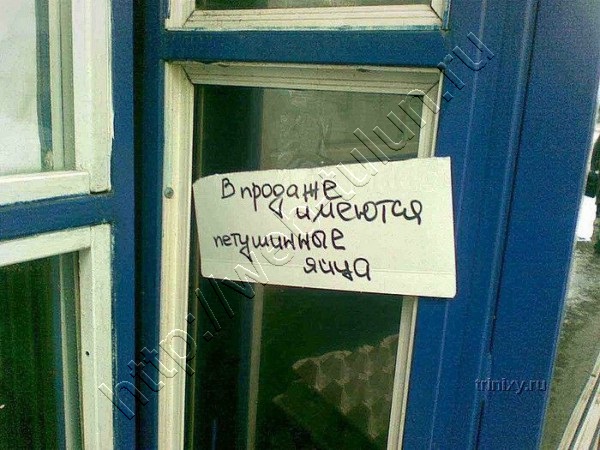 В продаже
имеются
петушинные
яйца
http://webtulun.ru
trinixy.ru